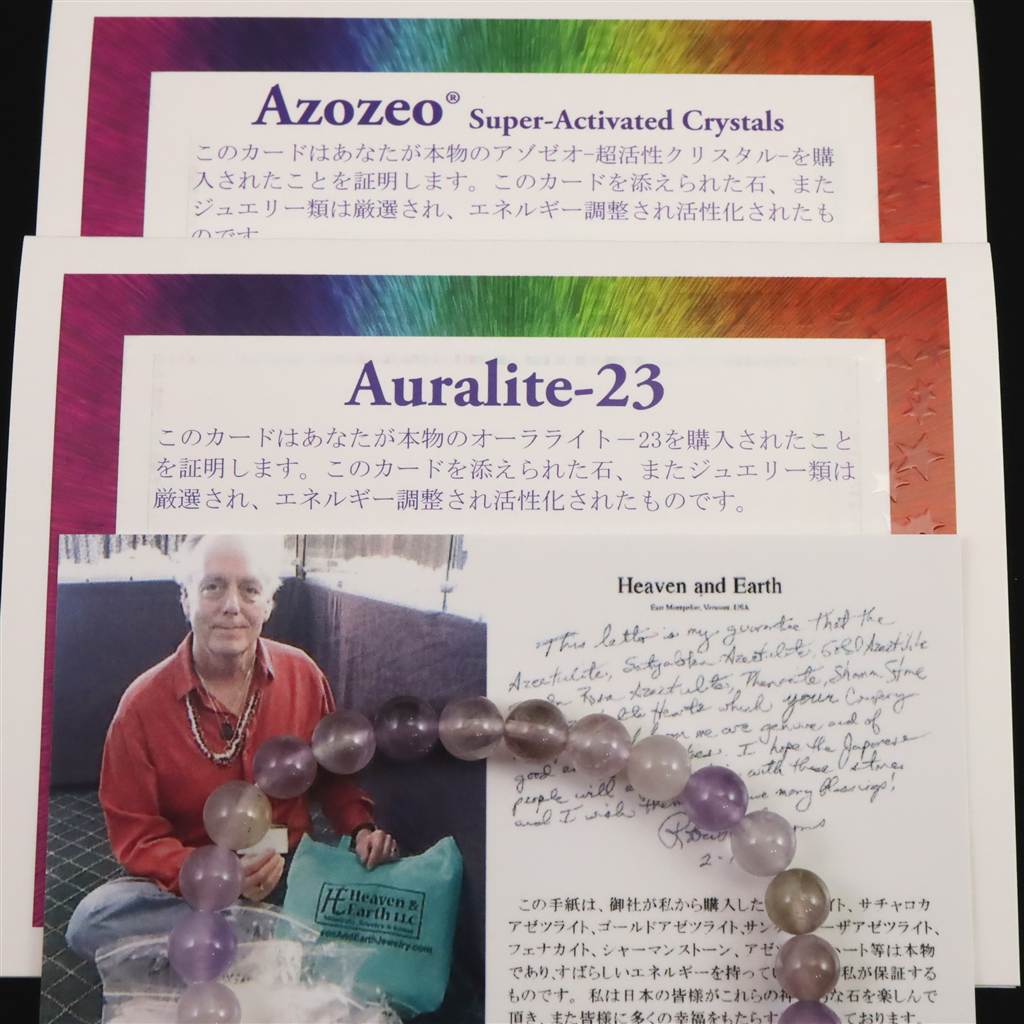 Azozeo® Super-Activated Crystals
このカードはあなたが本物のアゾゼオ-超活性クリスタル-を購
入されたことを証明します。このカードを添えられた石、また
ジュエリー類は厳選され、エネルギー調整され活性化されたも
のです
Auralite-23
このカードはあなたが本物のオーラライト－23を購入されたこと
を証明します。このカードを添えられた石、またジュエリー類は
厳選され、エネルギー調整され活性化されたものです。
Heaven and Earth
East Montpelier, Vermont, USA
This letter is my guarantee that the
Azeztulite, Satyaloka Azeztulite, Gold Azeztulite
Rosa Azeztulite, Phenacite, Shaman Stone
Hearts which your Company
from me are genuine and of
good I hope the Japanese
people will with these stones
and I wish them many Blessings!
HE Heaven &
Earth LLC
この手紙は、御社が私から購入した イト、サチャロカ
アゼツライト、ゴールドアゼツライト、サン ーザアゼツライト、
フェナカイト、シャーマンストーン、アゼ ハート等は本物
であり、すばらしいエネルギーを持ってい 私が保証する
ものです。 私は日本の皆様がこれらの神 な石を楽しんで
頂き、また皆様に多くの幸福をもたらす ております。